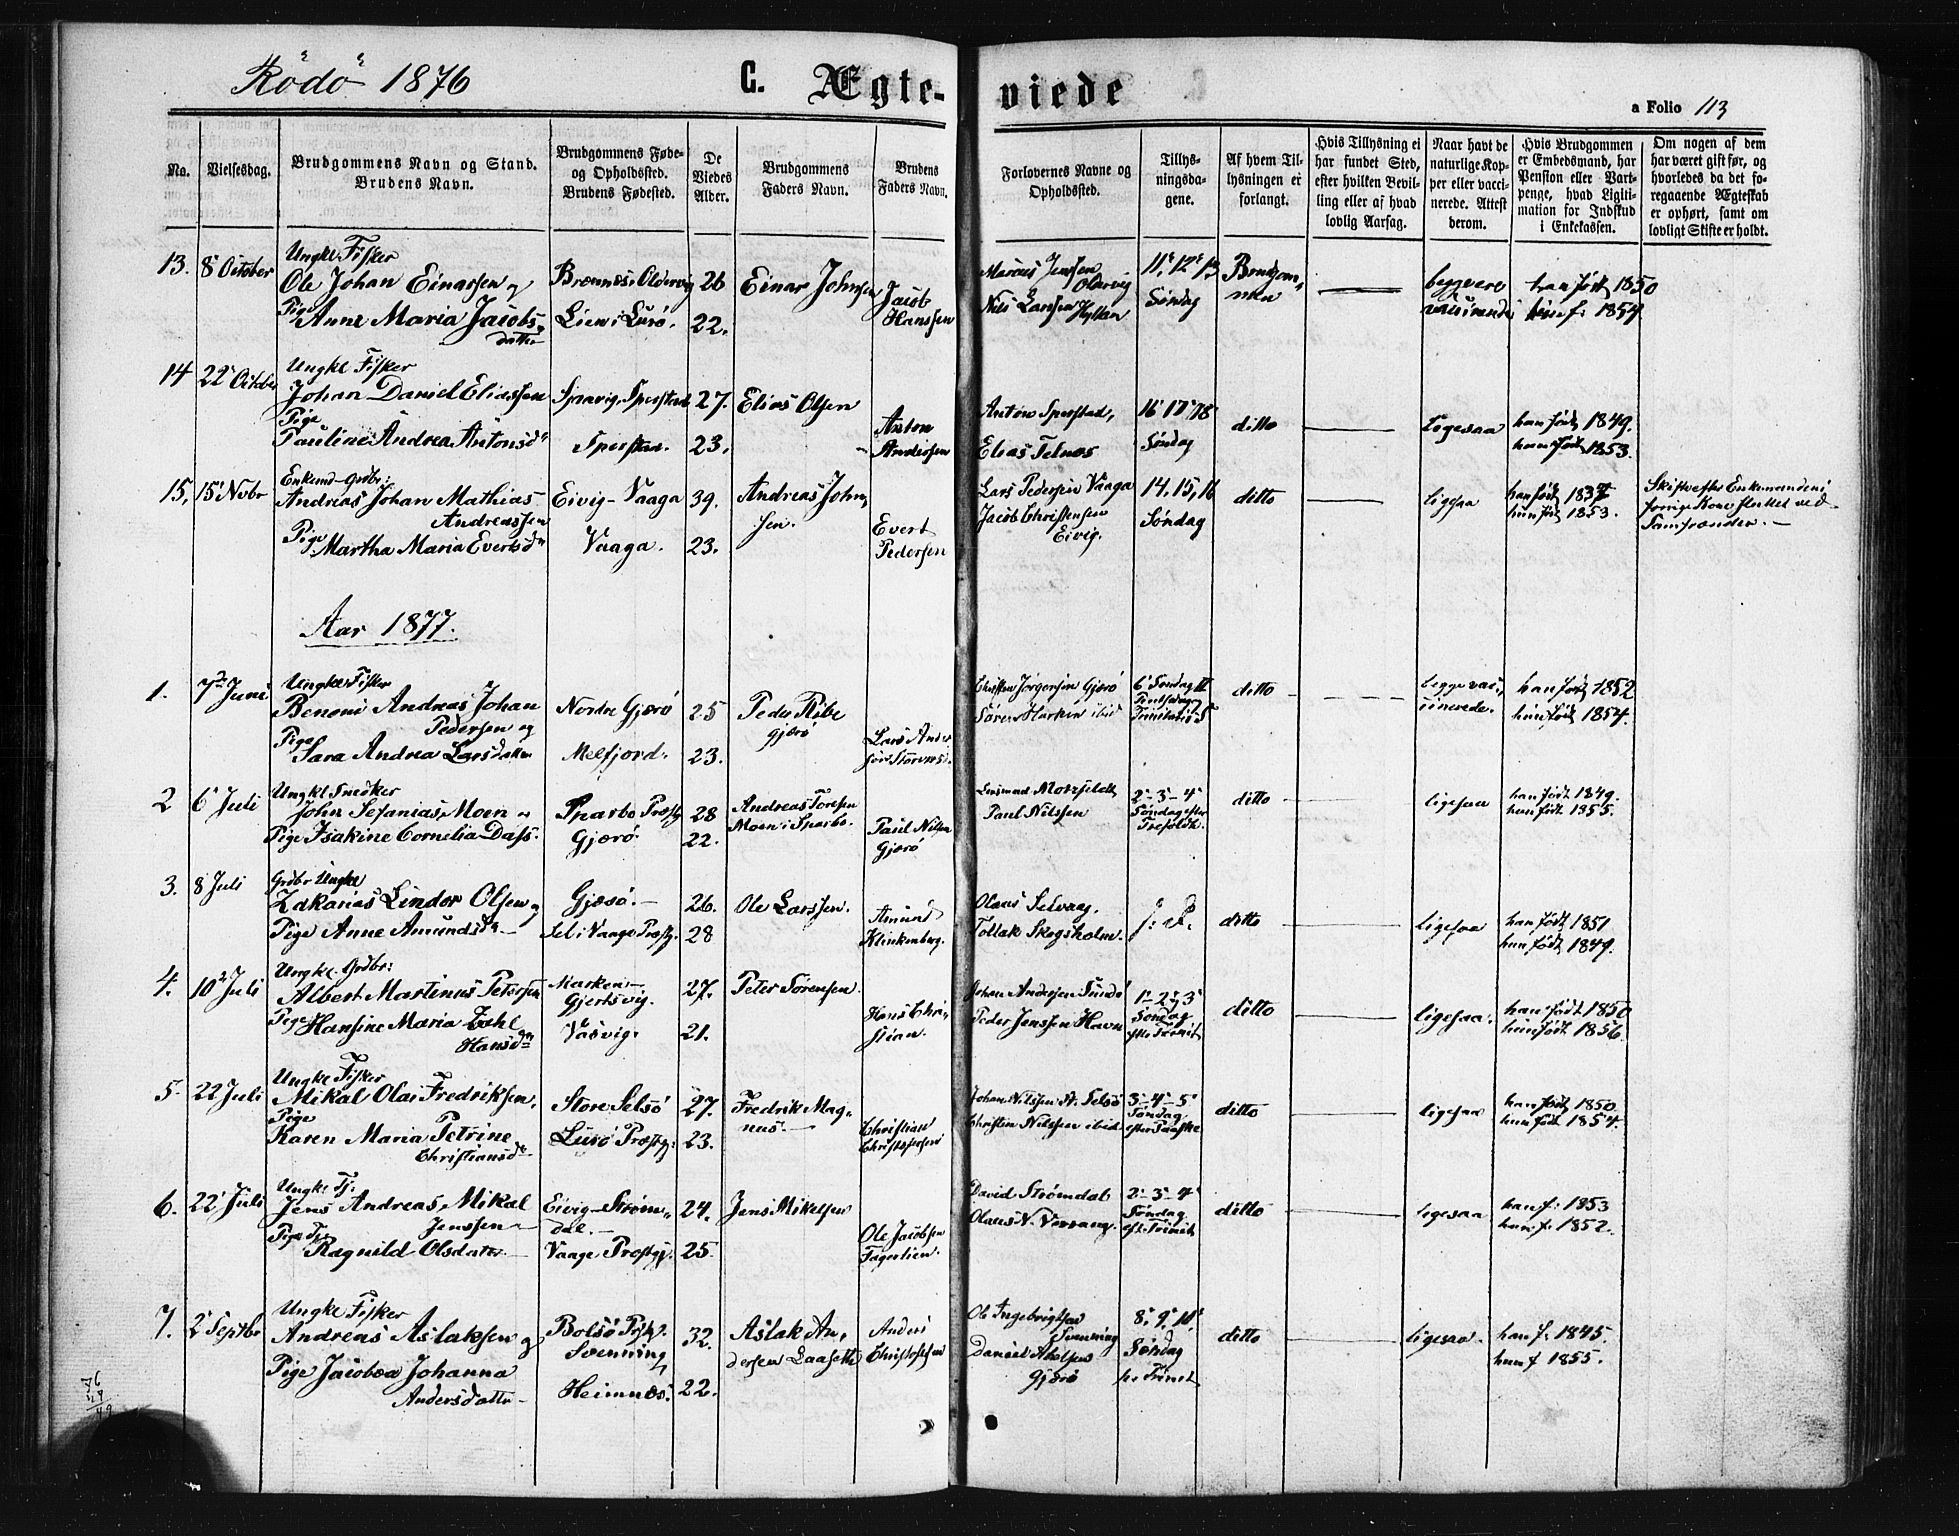 Rödö 1876
C. Ægte-
viede
a Folio 113
No.
Vielsesdag.
Brudgommens Navn og Stand.
Brudens Navn.
Brudgommens Føde-
og Opholdssted.
Brudens Fødested.
De
Viedes
Alder.
Brudgommens
Faders Navn.
Brudens
Faders Navn.
Forlovernes Navne og
Opholdssted.
Tillys-
ningsda-
gene.
Af hvem Til-
lysningen er
forlangt.
Hvis Tillysning ei
har fundet Sted,
efter hvilken Bevil-
ling eller af hvad
lovlig Aarsag.
Naar havt de
naturlige Kop-
per eller vacci-
nerede. Attest
derom.
Hvis Brudgommen
er Embedsmand, har
Pension eller Vart-
penge, hvad Ligiti-
mation for Indskud
i Enkekassen.
Om nogen af dem
har været gift før, og
hvorledes da det fo-
regaaende Ægteskab
er ophørt, samt om
lovligt Skifte er holdt.
13. 8 October
Ungkl Fisker
Ole Johan Einarssen og
Pige Anne Maria Jacobs-
datter
Brønnøs, Oldervig
Lien i Lurö.
26
22.
Einar Johnsen
Jacob
Hanssen
Marcus Jenssen
Olarvig
Nils Larssen Hyllan
11, 12, 13
Söndag
Brudgom-
men
beggevac
vaccinerede
han född 1850
hun f: 1854
14 22 October
Ungkl Fisker
Johan Daniel Eliassen
Pige
Pauline Andrea Antonsdr
Sjaavig, Sperstad
Sperstad.
27.
23.
Elias Olsen
Anton
Andersen
Anton Sperstad,
Elias Telnæs
16 17 18
Söndag
ditto
ligesaa
han född 1849.
hun född 1853.
15, 15 Novbr
Enkemd Grdbr:
Andreas Johan Mathias
Andreassen
Pige
Martha Maria Evertsdr
Eivig - Vaaga
Vaaga.
39.
23.
Andreas John-
sen.
Evert
Pedersen
Lars Pedersen Vaaga
Jacob Christensen
Eivig.
14, 15, 16
Söndag
ditto
ligesaa
han född 1837
hun född 1853.
Skifte efter Enkemandens
forrige Kone slutet ved
Samfrænder.
Aar 1877.
1. 7de Juni
Ungkl Fisker
Benoni Andreas Johan
Pedersen og
Pige
Sara Andrea Larsdatter
Nordre Gjærö
Melfjord.
25
23.
Peder Ribe
Gjærö
Lars Ander
Christen Jörgensen Gjærö
Sören Harken ibid
6 Söndag
ditto
begge vac-
cinerede.
han född 1852
hun född 1854.
2 6 Juli
Ungkl Snedker
John Sefanias Moen og
Pige Isakine Cornelia Dass.
Sparbo Præstg
Gjærö.
28
22.
Andreas Toresen
Moen i Sparbo.
Paul Nilsen
Gjærö
Lensmand Motzfeldt
Paul Nilssen
2-3-4
Söndag efter
Trefoldh.
ditto
ligesaa
han född 1849.
hun född 1855.
3. 8 Juli
Grdbr Ungkl
Zakarias Lindor Olsen og
Pige Anne Amundsdr
Gjærö.
Sel i Vaage Præstg.
26.
28
Ole Larssen.
Amund
Klinkenberg.
Olaus Selvaag.
Tollak Skogsholm.
ditto
ligesaa
han född 1851
hun född 1849.
4. 10 Juli
Ungkl. Grdbr:
Albert Martinus Petersen
Pige Hansine Maria Zahl
Hansdr
Harken
Gjertsvig.
Vasvig.
27.
21.
Peter Sörensen
Hans Chri-
stian.
Johan Andersen Sundö
Peder Jenssen Havn
1-2-3
Söndag
efter Trinit
ditto
ligesaa.
han född 1850
hun född 1856.
5. 22 Juli
Ungkl Fisker
Mikal Olai Fredriksen,
Pige
Karen Maria Petrine
Christiansdr
Store Selsö
Lurö Præstg:
27.
23.
Fredrik Mag-
nus.
Christian
Christophersen
Johan Nilssen St. Selsö
Christen Nilssen ibid
3-4-5
Söndag
efter Paaske
ditto
ligesaa
han född 1850
hun född 1854.
6. 22 Juli
Ungkl Fj:
Jens Andreas Mikal
Jenssen
Pige
Ragnild Olsdatter
Eivig - Ström-
dal.
Vaage Præstgj.
24.
25.
Jens Mikelsen
Ole Jacobsen
Fagerlien.
David Strömdal
Olaus N. Værrang.
2-3-4
Söndag
eft. Trinit
ditto
ligesaa
han f: 1853
hun f: 1852.
7. 2 Septbr
Ungkl Fisker
Andreas Aslaksen og
Pige Jacobea Johanna
Andersdatter
Bolsö Præstg.
Svenning
Heimnæs.
32.
22.
Aslak An-
dersen Laasett
Anders
Christofersen
Ole Ingebrigtsen
Svenning
Daniel Abelsen
Gjærö
8, 9, 10
Söndag
pr Trinit
ditto
ligesaa.
han f: 1845.
hun f 1855.